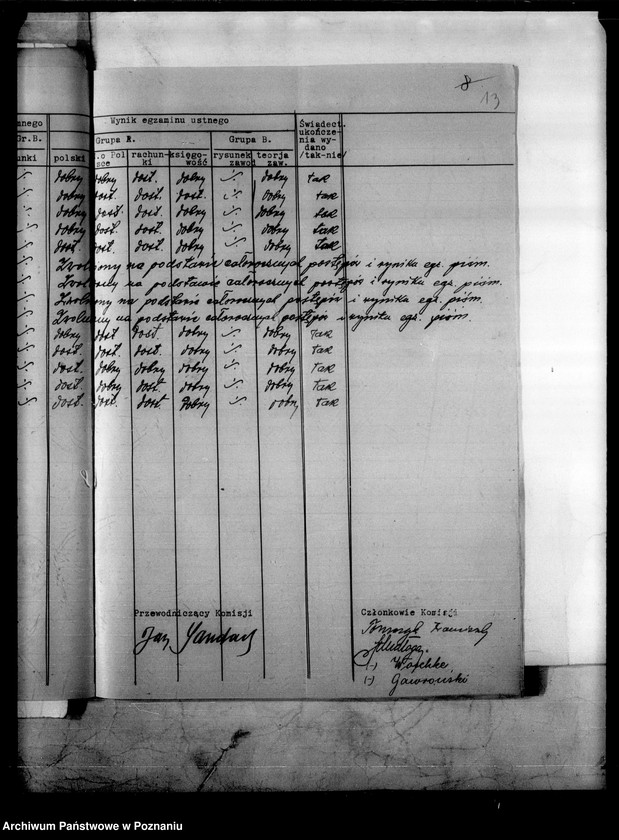 8
13
znego
Wynik egzaminu ustnego
Świadect. ukończenia wydano /tak-nie/
Gr.B.
Grupa A.
Grupa B.
unki polski o Polsce rachunki księgowość rysunek zawod teorja zaw.
-/- dobry dobry dost. dobry -/- dobry tak
-/- dobry dost. dost. dobry -/- dobry tak
-/- dobry dost. dost. dobry -/- dobry tak
-/- dobry dost. dost. dobry -/- dobry tak
-/- dost. dost. dost. dobry -/- dobry tak
-/- Zwolniony na podstawie całorocznych postępów i wyniku egz. piśm.
-/- Zwolniony na podstawie całorocznych postępów i wyniku egz. piśm.
-/- Zwolniony na podstawie całorocznych postępów i wyniku egz. piśm.
-/- Zwolniony na podstawie całorocznych postępów i wyniku egz. piśm.
-/- dobry dost. dost dobry -/- dobry tak
-/- dost. dost. dost. dobry -/- dobry tak
-/- dost. dobry dobry dobry -/- dobry tak
-/- dost. dobry dost. dobry -/- dobry tak
-/- dost. dost. dost. dobry -/- dobry tak
Przewodniczący Komisji
Członkowie Komisji
Jan
(-) Waschke
(-) Gaworoński
Archiwum Państwowe w Poznaniu